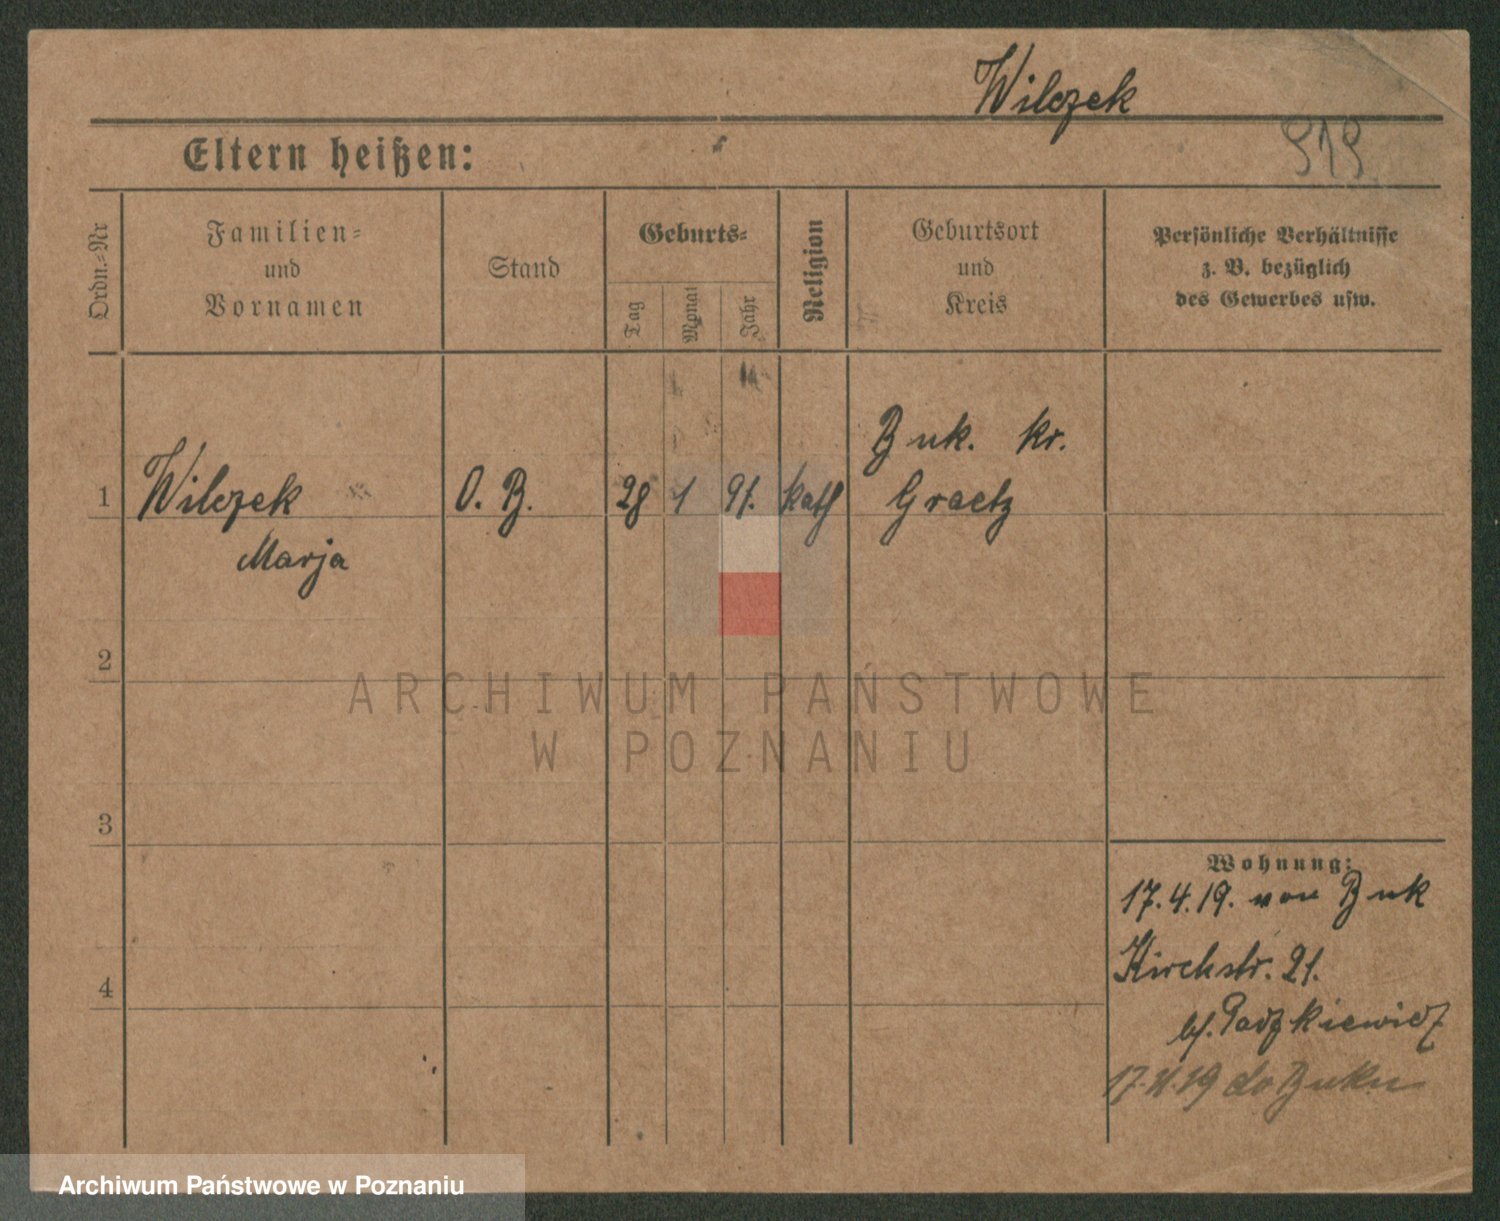 Wilczek
919
Eltern heißen:
Ordn.-Nr
Familien-
und
Vornamen
Stand
Geburts-
Tag
Monat
Jahr
Religion
Geburtsort
und
Kreis
Persönliche Verhältnisse
z. B. bezüglich
des Gewerbes usw.
1
Wilczek
Marja
O. B.
28
1
91.
kath
Buk. kr.
Graetz
2
ARCHIWUM PAŃSTWOWE
W POZNANIU
3
4
Wohnung:
17.4.19. von Buk
Kirchstr. 21.
17.11.19 do Buku
Archiwum Państwowe w Poznaniu